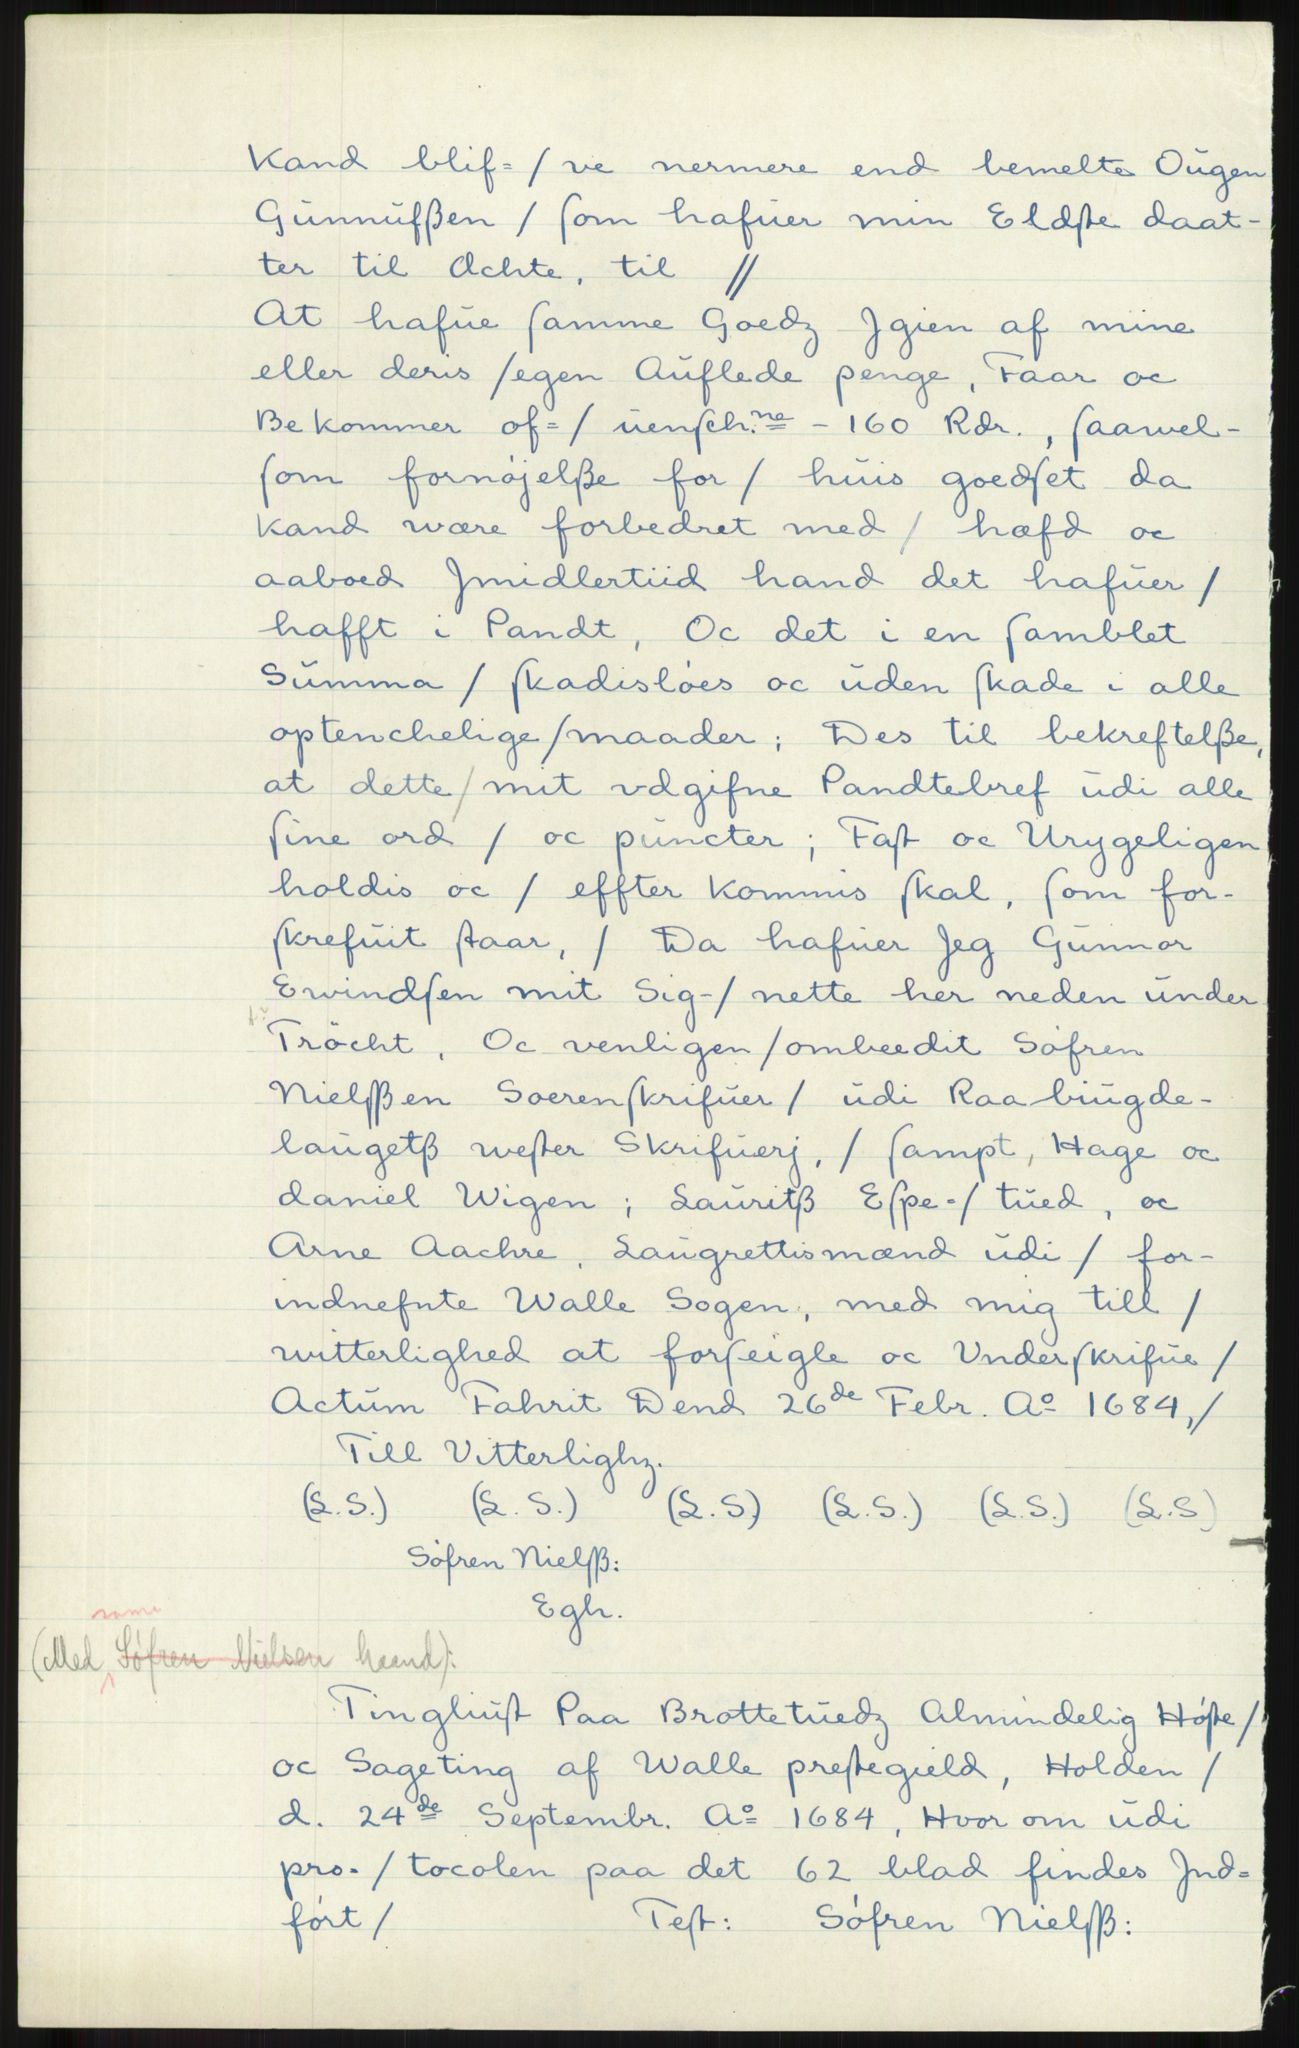 Kand blif=/ve nermere end bemelte Oŭgen
Gŭnnŭfßen / ſom hafŭer min Eldſte daat-
ter til Achte, til //
At hafŭe ſamme Goedz Jgien af mine
eller deris /egen Aŭflede penge, Faar oc
Bekommer of=/ ŭenſch.ne - 160 Rdr., ſaavel-
ſom fornøjelße for / hŭis goedſet da
kand wære forbedret med / hæfd oc
aaboed Jmidlertiid hand det hafŭer /
hafft i Pandt, Oc det i en ſamblet
Sŭmma / ſkadisløes oc ŭden ſkade i alle
optenchelige/maader; Des til bekreftelße,
at dette/mit vdgifne Pandtebref ŭdi alle
ſine ord / oc pŭncter; Faſt oc Urygeligen
holdis oc / effter Kommis ſkal, ſom for-
ſkrefŭit ſtaar, / Da hafŭer Jeg Gŭnnor
Ewindſen mit Sig-/ nette her neden ŭnder
Tröcht, Oc venligen/ombeedit Søfren
Nielſßen Soerenſkrifŭer / ŭdi Raabiŭgde-
laŭgetß weſter Skrifŭerj, / ſampt, Hage oc
daniel Wigen; Laŭritß Eſpe-/ tŭed, oc
Arne Aachre, Laŭgrettismænd ŭdi / for-
indnefnte Walle Sogen, med mig till /
witterlighed at forſeigle oc Vnderſkrifŭe /
Actŭm Fahrit Dend 26de Febr. Ao 1684,/
Till Vitterlighz.
(L.S.) (L.S.) (L.S) (L.S.) (L.S.) (L.S)
Søfren Nielſß:
Egh.
samme
(Med Søfren Nielsen haand):
Tingliŭſt Paa Brottetŭedz Almindelig Høſte /
oc Sageting af Walle preſtegield, Holden /
d. 24de Septembr. Ao 1684, Hvor om ŭdi
pro-/tocolen paa det 62 blad findes Jnd=
ført / Teſt: Søfren Nielſß: